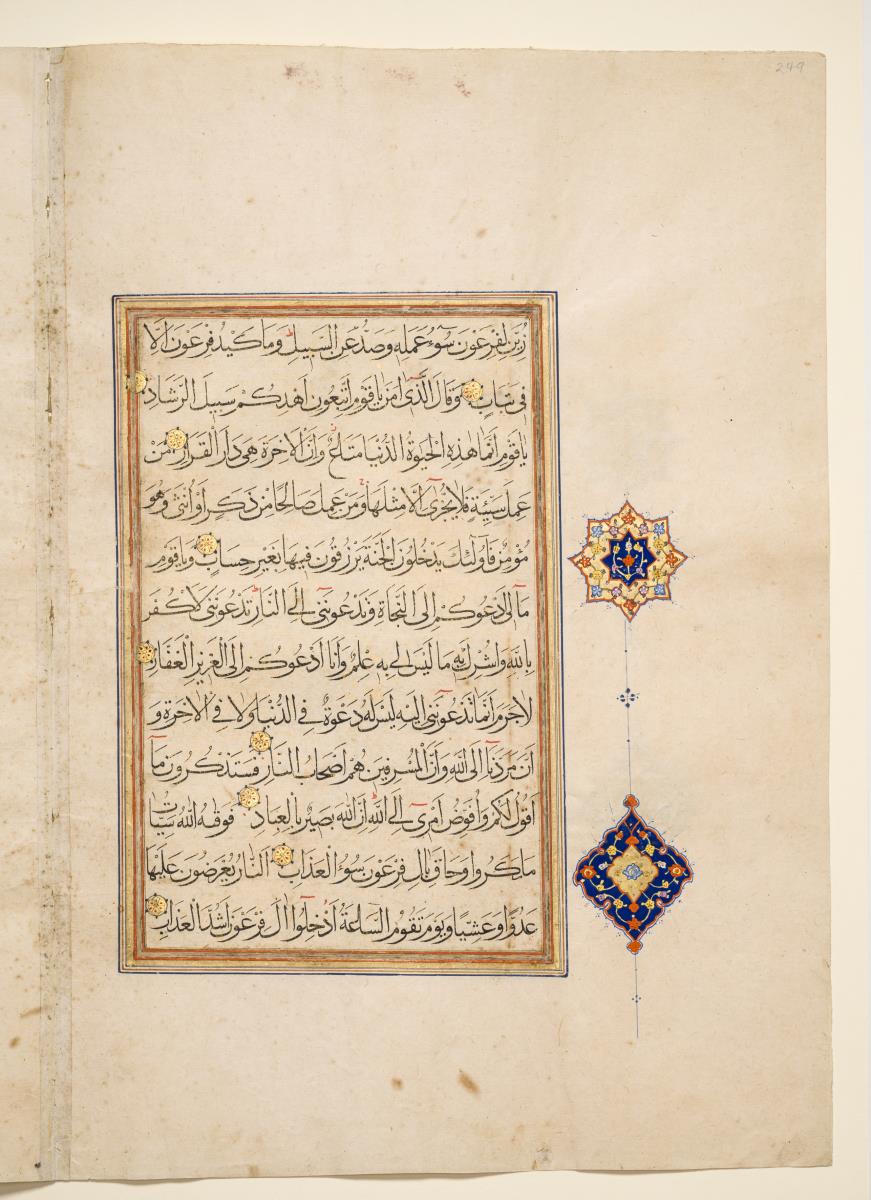 249
زُيِّنَ لِفِرْعَوْنَ سُوٓءُ عَمَلِهِ وَصُدَّ عَنِ السَّبِيلِ وَمَا كَيْدُ فِرْعَوْنَ اِلَّا
فِى تَبَابٍ وَقَالَ الَّذِىٓ اٰمَنَ يَا قَوْمِ اتَّبِعُونِ اَهْدِكُمْ سَبِيلَ الرَّشَادِ
يَا قَوْمِ اِنَّمَا هٰذِهِ الْحَيٰوةُ الدُّنْيَا مَتَاعٌ وَاِنَّ الْاٰخِرَةَ هِىَ دَارُ الْقَرَارِ مَنْ
عَمِلَ سَيِّئَةً فَلَا يُجْزٰىٓ اِلَّا مِثْلَهَا وَمَنْ عَمِلَ صَالِحًا مِنْ ذَكَرٍ اَوْ اُنْثٰى وَهُوَ
مُؤْمِنٌ فَاُولٰٓئِكَ يَدْخُلُونَ الْجَنَّةَ يُرْزَقُونَ فِيهَا بِغَيْرِ حِسَابٍ وَيَا قَوْمِ
مَالِىٓ اَدْعُوكُمْ اِلَى النَّجَاةِ وَتَدْعُونَنِىٓ اِلَى النَّارِ تَدْعُونَنِى لِاَكْفُرَ
بِاللّٰهِ وَاُشْرِكَ بِهِ مَا لَيْسَ لِى بِهِ عِلْمٌ وَاَنَا اَدْعُوكُمْ اِلَى الْعَزِيزِ الْغَفَّارِ
لَا جَرَمَ اَنَّمَا تَدْعُونَنِىٓ اِلَيْهِ لَيْسَ لَهُ دَعْوَةٌ فِى الدُّنْيَا وَلَا فِى الْاٰخِرَةِ وَ
اَنَّ مَرَدَّنَآ اِلَى اللّٰهِ وَاَنَّ الْمُسْرِفِينَ هُمْ اَصْحَابُ النَّارِ فَسَتَذْكُرُونَ مَآ
اَقُولُ لَكُمْ وَاُفَوِّضُ اَمْرِىٓ اِلَى اللّٰهِ اِنَّ اللّٰهَ بَصِيرٌ بِالْعِبَادِ فَوَقٰهُ اللّٰهُ سَيِّئَاتِ
مَا مَكَرُوا وَحَاقَ بِاٰلِ فِرْعَوْنَ سُوٓءُ الْعَذَابِ اَلنَّارُ يُعْرَضُونَ عَلَيْهَا
غُدُوًّا وَعَشِيًّا وَيَوْمَ تَقُومُ السَّاعَةُ اَدْخِلُوٓا اٰلَ فِرْعَوْنَ اَشَدَّ الْعَذَابِ